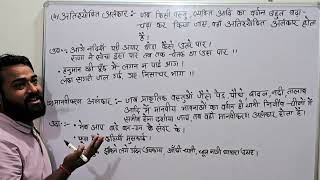 (4) अतिशयोक्ति अलंकार :- जब किसी वस्तु, व्यक्ति आदि का वर्णन बहुत बढ़ा-
चढ़ा कर किया जाए, वहाँ अतिशयोक्ति अलंकार होता
है।
उदा०:- आगे नदिया पड़ी अपार घोड़ा कैसे उतरे पार।
राणा ने सोचा इस पार तब तक चेतक था उस पार।।
• हनुमान की पूँछ में लगन न पाई आग।
लंका सगरी जल गई, गए निसाचर भाग।।
मानवीकरण अलंकार :- जब प्राकृतिक वस्तुओं जैसे पेड़ पौधे बादल, नदी तालाब
आदि में मानवीय भावनाओं का वर्णन हो यानी निर्जीव चीजों में
सजीव होना दर्शाया जाए, वहाँ मानवीकरण अलंकार होता है।
उदा०:- मेघ आए बड़े बन-ठन के सँवर के।